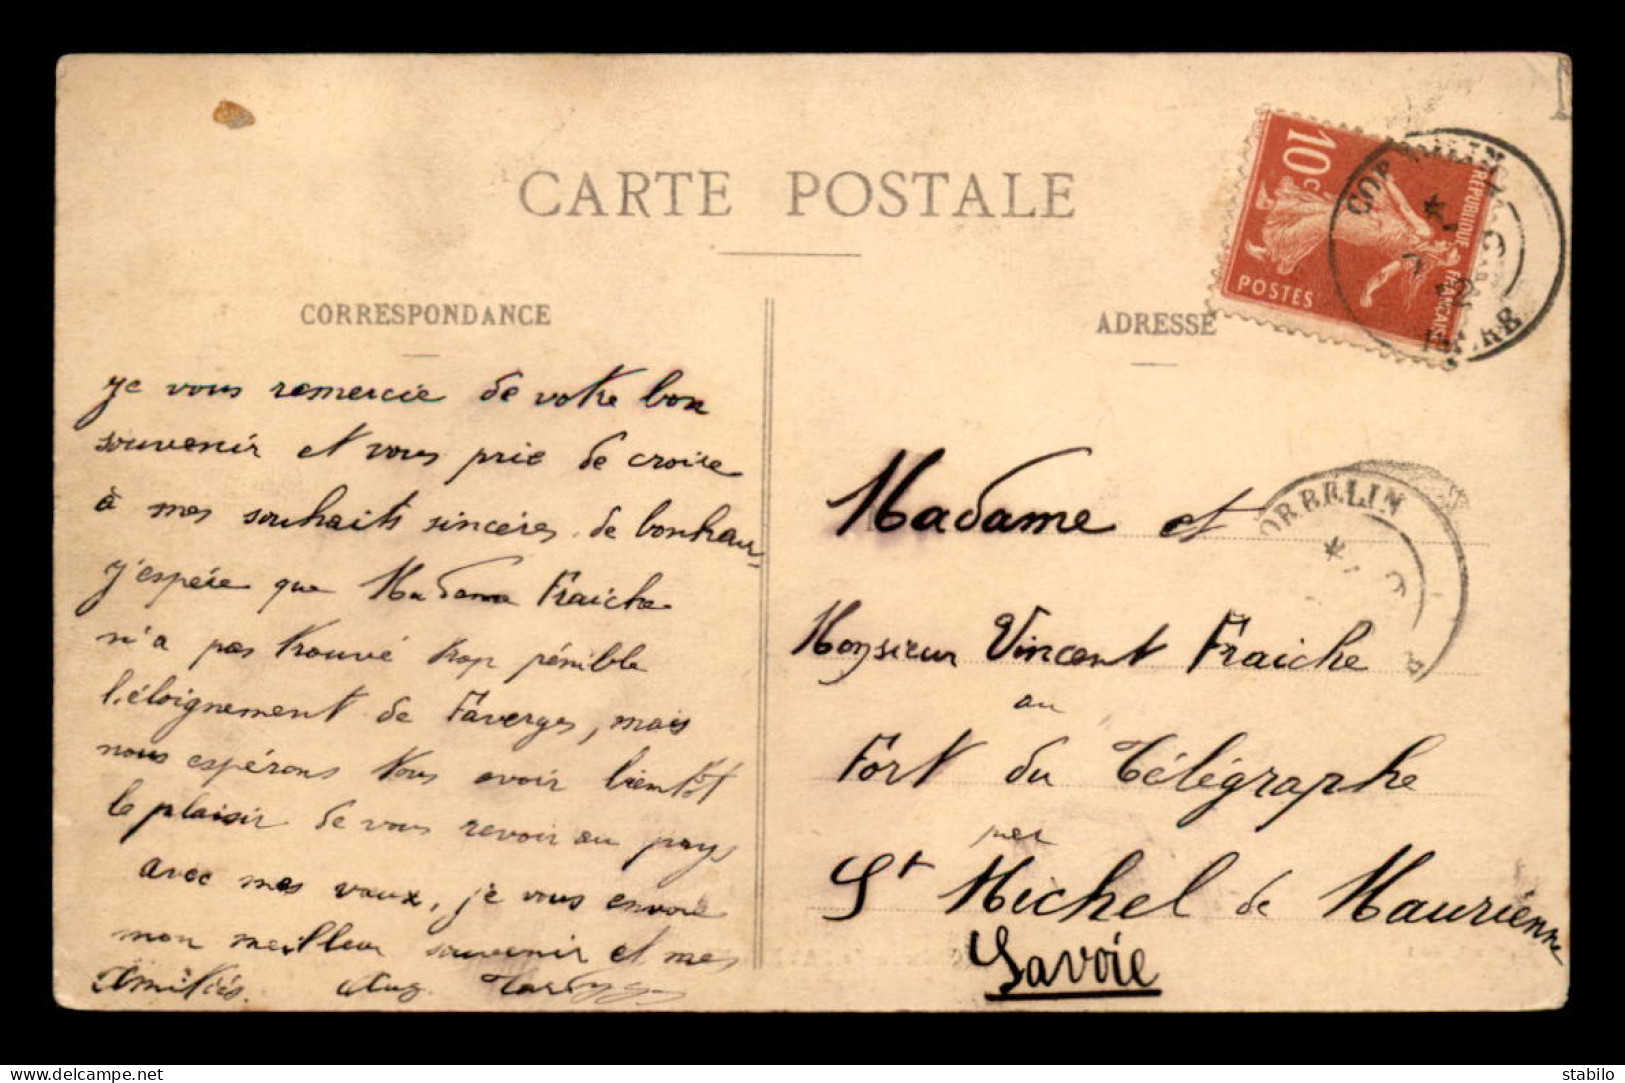 CARTE POSTALE
CORRESPONDANCE
ADRESSE
10c
REPUBLIQUE FRANÇAISE
POSTES
CORBELIN
ISERE
ORBELIN
Je vous remercie de votre bon
souvenir et vous prie de croire
à mes souhaits sincères de bonheur
j'espère que Madame Fraiche
n'a pas trouvé trop pénible
l'éloignement de Faverges, mais
nous espérons vous avoir bientôt
le plaisir de vous revoir au pays
avec mes vœux, je vous envoie
mon meilleur souvenir et mes
Amitiés. Aug.
Madame et
Monsieur Vincent Fraiche
au
Fort du Télégraphe
par
St Michel de Maurienne
Savoie
www.delcampe.net
stabilo